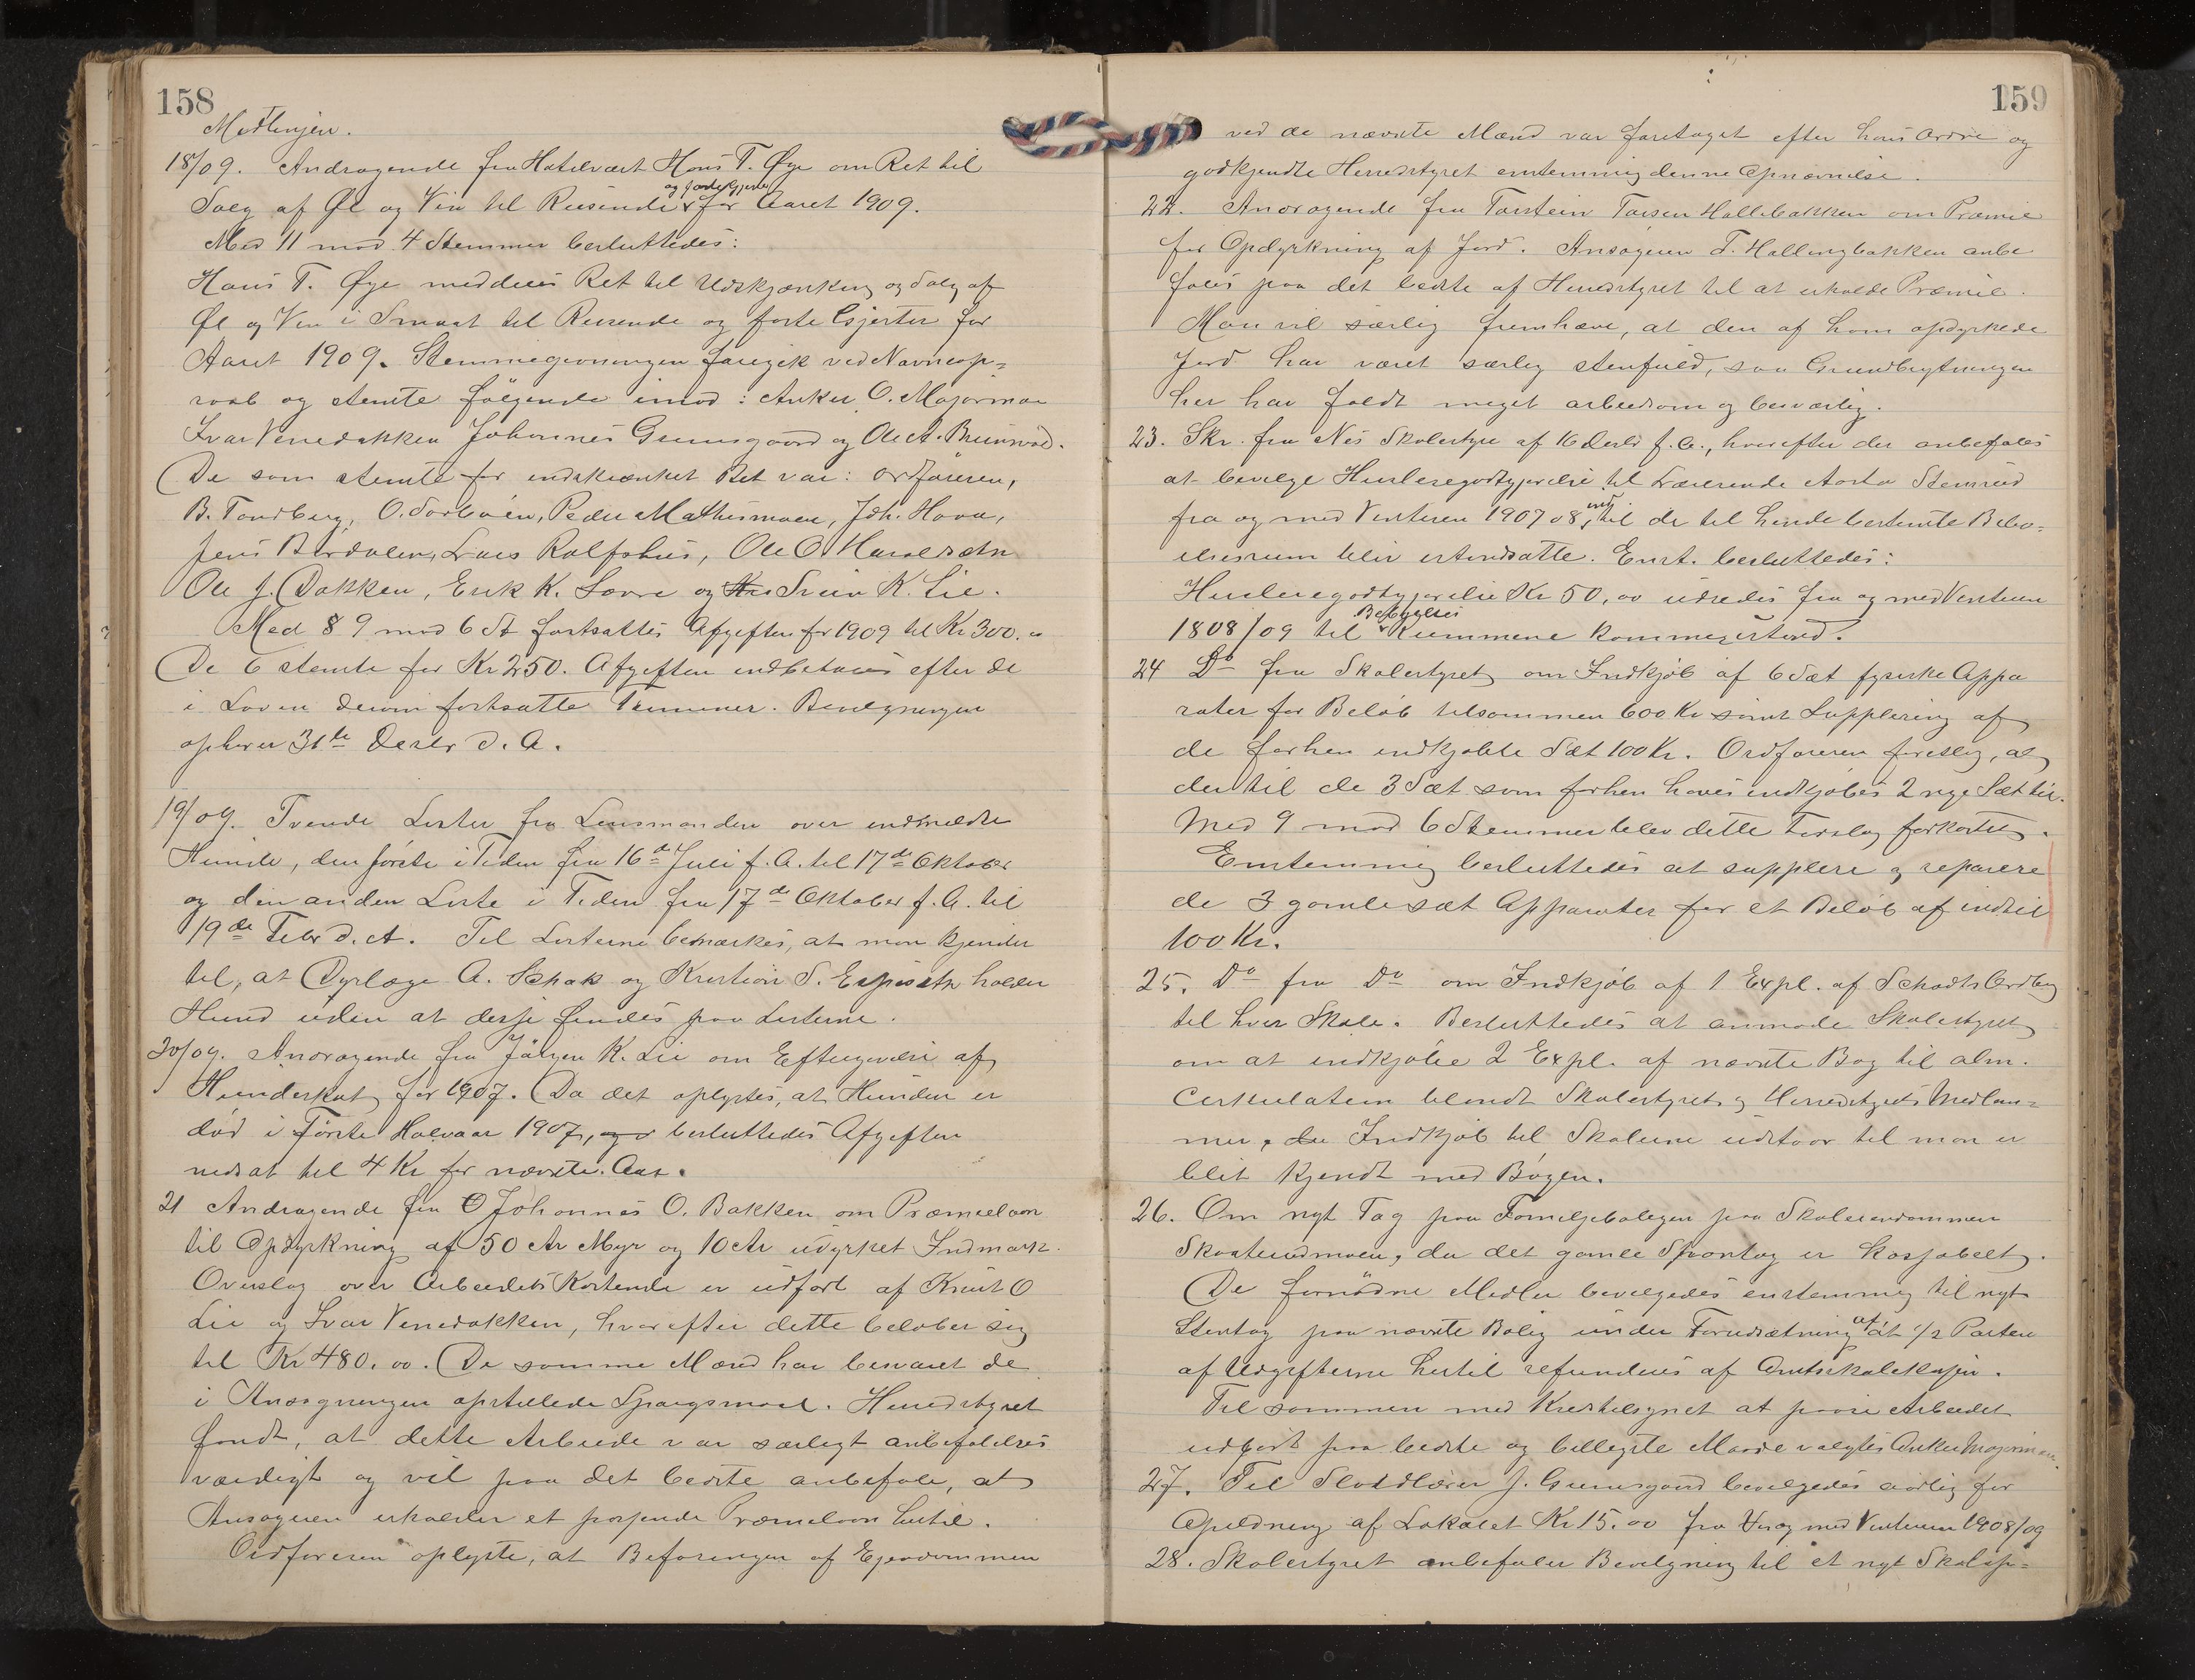 158
Medlemen.
18/09. Andragende fra Hotelvært Hans T. Øye om Ret til
Salg af Øl og Vin til Reisende og faste Gjester for Aaret 1909.
Med 11 mod 4 Stemmer besluttedes:
Hans T. Øye meddeles Ret til Udskjænkning og Salg af
Øl og Vin i Smaat til Reisende og faste Gjester for
Aaret 1909. Stemmegivningen foregik ved Navneop=
raab og stemte følgende imod: Anker O. Majormoen
Ivar Venedakken Johannes Gunnsgaard og Ole A. Breiset.
De som stemte for indskrænket Ret var: Ordføreren,
B. Tandberg, O. Sorbøen, Peder Mathismoen, Joh. Hova,
Jens Børdalen, Lars Rolfshus, Ole O. Haraldseth
Ole J. Dokken, Erik K. Lovre og Svein K. Lie.
Med 9 mod 6 St fastsattes Afgiften for 1909 til Kr 300.
De 6 stemte for Kr 250. Afgiften indbetales efter de
i Loven derom fastsatte Terminer. Bevilgningen
ophører 31te Decbr d. A.
19/09. Tvende Lister fra Lensmanden over indmeldte
Hunde, den første i Tiden fra 16de Juli f. A. til 17de Oktober
og den anden Liste i Tiden fra 17de Oktober f. A. til
19de Febr d. A. Til Listerne bemærkes, at man kjender
til, at Dyrlæge A. Schak og Kristian S. Espeseth holder
Hund uden at disse findes paa Listerne.
20/09. Andragende fra Jørgen K. Lie om Eftergivelse af
Hundeskat for 1907. Da det oplystes, at Hunden er
død i første Halvaar 1907, besluttedes Afgiften
nedsat til 4 Kr for nævnte Aar.
21 Andragende fra Johannes O. Bakken om Præmielaan
til Opdyrkning af 50 Ar Myr og 10 Ar udyrket Indmark.
Overslag over Arbeidets Kostende er udført af Knut O
Lie og Ivar Venedakken, hvorefter dette beløber sig
til Kr 480.00. De samme Mænd har besvaret de
i Ansøgningen opstillede Spørgsmaal. Herredstyret
fandt, at dette Arbeide var særligt anbefalelses
værdigt og vil paa det bedste anbefale, at
Ansøgeren erholder et passende Præmielaan hertil.
Ordføreren oplyste, at Befaringen af Eiendommen
159
ved de nævnte Mænd var foretaget efter hans Ordre og
godkjendte Herredstyret enstemmig denne Opnævnelse.
22. Andragende fra Torstein Larsen Hallebakken om Præmie
for Opdyrkning af Jord. Ansøgeren T. Hallingbakken anbe
fales paa det bedste af Herredstyret til at erholde Præmie.
Man vil særlig fremhæve, at den af ham opdyrkede
Jord har været særlig stenfuld, saa Grundbrytningen
her har faldt meget arbeidsom og besværlig.
23. Skr. fra Nes Skolestyre af 16 Decbr f. A., hvorefter der anbefales
at bevilge Husleiegodtgjørelse til Lærerinde Aasta Stensrud
fra og med Vinteren 1907 08, indtil de til hende bestemte Bebo=
elsesrum bliver istandsatte. Enst. besluttedes:
Husleiegodtgjørelse Kr 50,00 udredes fra og med Vinteren
1808/09 til Beboelses Rummene kommer istand.
24 Do fra Skolestyret om Indkjøb af 6 Sæt fysiske Appa
rater for Beløb tilsammen 600 Kr samt Supplering af
de forhen indkjøbte Sæt 100 Kr. Ordføreren foreslog, at
der til de 3 Sæt som forhen haves indkjøbes 2 nye Sæt til.
Med 9 mod 6 Stemmer blev dette Forslag forkastet.
Enstemmig besluttedes at supplere og reparere
de 3 gamle sæt Apparater for et Beløb af indtil
100 Kr.
25. Do fra Do om Indkjøb af 1 Expl. af Schadts Ordbog
til hver Skole. Besluttedes at anmode Skolestyret
om at indkjøbe 2 Expl. af nævnte Bog til alm.
Cirkulation blandt Skolestyrets og Herredstyrets Medlem=
mer, da Indkjøb til Skolerne udstaar til man er
blit kjendt med Bogen.
26. Om nyt Tag paa Familjeboligen paa Skoleeiendommen
Skoateiendmoen, da det gamle Spontag er kassabelt.
De fornødne Midler bevilgedes enstemmig til nyt
Stentag paa nævnte Bolig under Forudsætning af at 1/2 Parten
af Udgifterne hertil refunderes af Amtsskolekassen.
Til sammen med Kirketilsynet at faa Arbeidet
udført paa bedste og billigste Maade valgtes Anker Majormoen.
27. Til Sløidlærer J. Gunnsgaard bevilgedes aarlig for
Opvarmning af Lokalet Kr 15.00 fra og med Vinteren 1908/09
28. Skolestyret anbefaler Bevilgning til et nyt Skolap=